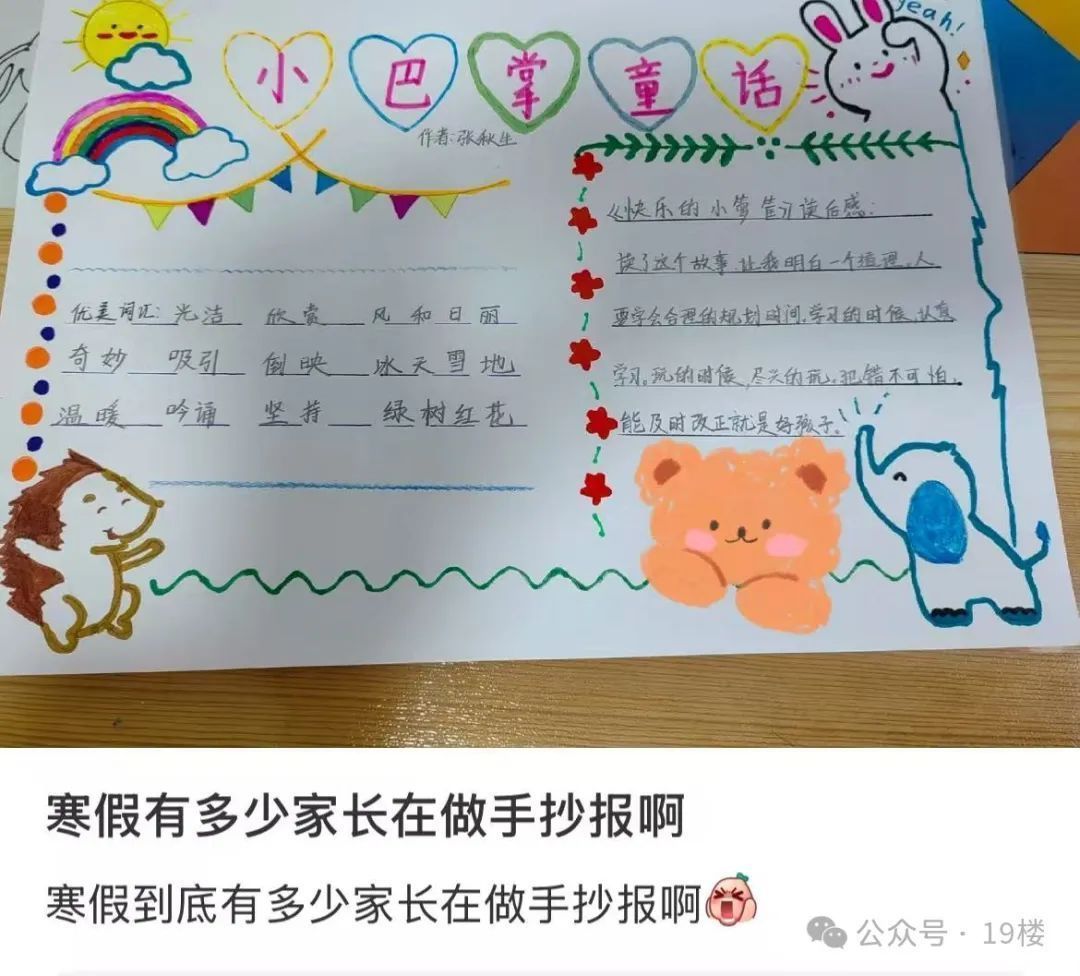 yeah!
小巴掌童话
作者:张秋生
优美词汇: 光洁 欣赏 风和日丽
奇妙 吸引 倒映 冰天雪地
温暖 吟诵 坚持 绿树红花
《快乐的小箩筐》读后感:
读了这个故事,让我明白一个道理,人
要学会合理的规划时间,学习的时候,认真
学习。玩的时候,尽兴的玩。犯错不可怕,
能及时改正就是好孩子!
寒假有多少家长在做手抄报啊
寒假到底有多少家长在做手抄报啊
公众号·19楼